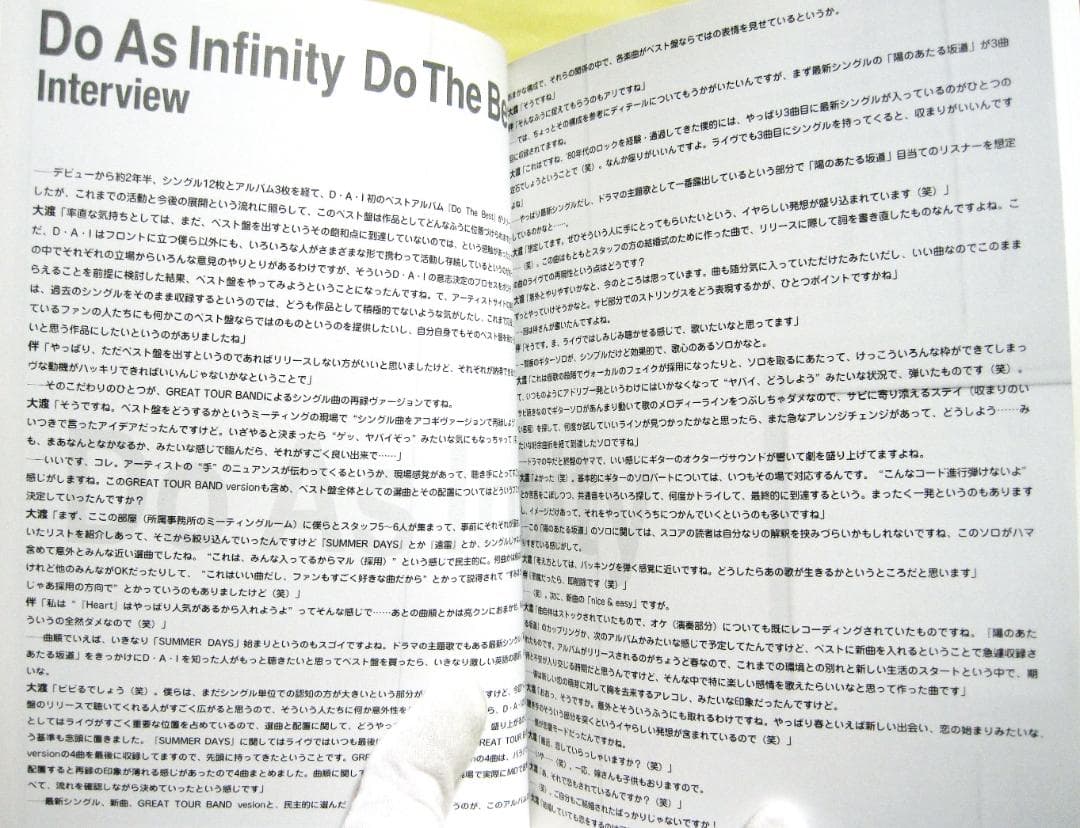 Do As Infinity Do The Be
Interview
──デビューから約2年半、シングル12枚とアルバム3枚を経て、D・A・I初のベストアルバム『Do The Best』が
したが、これまでの活動と今後の展開という流れに照らして、このベスト盤は作品としてどんなふうに位置づけられ
大渡「率直な気持ちとしては、まだ、ベスト盤を出すというその飽和点に到達していないのでは、という感触が
だ、D・A・Iはフロントに立つ僕ら以外にも、いろいろな人がさまざまな形で携わって活動し存続しているというの
の中でそれぞれの立場からいろんな意見のやりとりがあるわけですが、そういうD・A・Iの意志決定のプロセスを
らえることを前提に検討した結果、ベスト盤をやってみようということになったんですね。で、アーティストサイドの
は、過去のシングルをそのまま収録するというのでは、どうも作品として積極的でないような気がしたし、これまで
ているファンの人たちにも何かこのベスト盤ならではのものというのを提供したいし、自分自身でもそのベスト盤を
いと思う作品にしたいというのがありましたね」
伴「やっぱり、ただベスト盤を出すというのであればリリースしない方がいいと思いましたけど、それぞれが納得でき
ヴな動機がハッキリできればいいんじゃないかなということで」
──そのこだわりのひとつが、GREAT TOUR BANDによるシングル曲の再録ヴァージョンですね。
大渡「そうですね。ベスト盤をどうするかというミーティングの現場で“シングル曲をアコギヴァージョンで再録
いつきで言ったアイデアだったんですけど。いざやると決まったら“ゲッ、ヤバイぞっ”みたいな気にもなっちゃって
も、まあなんとかなるか、みたいな感じで臨んだら、それがすごく良い出来で……」
──いいです、コレ。アーティストの“手”のニュアンスが伝わってくるというか、現場感覚があって、聴き手にとって
感じがしますね。このGREAT TOUR BAND versionも含め、ベスト盤全体としての選曲とその配置についてはどういう
決定していったんですか？
大渡「まず、ここの部屋（所属事務所のミーティングルーム）に僕らとスタッフ5〜6人が集まって、事前にそれぞれが
いたリストを紹介しあって、そこから絞り込んでいったんですけど「SUMMER DAYS」とか「遠雷」とか、シングル
含めて意外とみんな近い選曲でしたね。“これは、みんな入ってるからマル（採用）”という感じで民主的に。何曲かは
けれど他のみんながOKだったりして、“これはいい曲だし、ファンもすごく好きな曲だから”とかって説得されて
じゃあ採用の方向で”とかっていうのもありましたけど（笑）」
伴「私は“『Heart』はやっぱり人気があるから入れようよ”ってそんな感じで……あとの曲順とかは亮クンにおまかせ
ういうの全然ダメなので（笑）」
──曲順でいえば、いきなり「SUMMER DAYS」始まりというのもスゴイですよね。ドラマの主題歌でもある最新シングル
あたる坂道」をきっかけにD・A・Iを知った人がもっと聴きたいと思ってベスト盤を買ったら、いきなり激しい英語の
いな。
大渡「ビビるでしょう（笑）。僕らは、まだシングル単位での認知の方が大きいという部分が
盤のリリースで聴いてくれる人がすごく広がると思うので、そういう人たちに何か意外性を
としてはライヴがすごく重要な位置を占めているので、選曲と配置に関して、どうやって
う基準も念頭に置きました。「SUMMER DAYS」に関してはライヴではいつも最後に
versionの4曲を最後に収録してますので、先頭に持ってきたということです。
配置すると再録の印象が薄れる感じがあったので4曲まとめました。曲順に関して
べて、流れを確認しながら決めていったという感じです」
──最新シングル、新曲、GREAT TOUR BAND vesionと、民主的に選んだ
まかな構成で、それらの関係の中で、各楽曲がベスト盤ならではの表情を見せているというか。
大渡「そうですね」
伴「そんなふうに捉えてもらうのもアリですね」
──では、ちょっとその構成を参考にディテールについてもうかがいたいんですが、まず最新シングルの「陽のあたる坂道」が3曲
目に収録されてますね。
大渡「これはですね、'80年代のロックを経験・通過してきた僕的には、やっぱり3曲目に最新シングルが入っているのがひとつの
定石でしょうということで（笑）。なんか座りがいいんですよ。ライヴでも3曲目にシングルを持ってくると、収まりがいいんです
よね」
──やっぱり最新シングルだし、ドラマの主題歌として一番露出しているという部分で「陽のあたる坂道」目当てのリスナーを想定
しているのかなと……。
大渡「想定してます。ぜひそういう人に手にとってもらいたいという、イヤらしい発想が盛り込まれています（笑）」
──（笑）。この曲はもともとスタッフの方の結婚式のために作った曲で、リリースに際して詞を書き直したものなんですよね。こ
の曲のライヴでの再現性という点はどうですか？
大渡「意外とやりやすいかなと、今のところは思っています。曲も随分気に入っていただけたみたいだし、いい曲なのでこのまま
ずっとやっていけそうかなと。サビ部分でのストリングスをどう表現するかが、ひとつポイントですかね」
──詞は伴さんが書いたんですよね。
伴「そうです。ま、ライヴではしみじみ聴かせる感じで、歌いたいなと思ってます」
──間奏のギターソロが、シンプルだけど効果的で、歌心のあるソロかなと。
大渡「これは仮歌の段階でヴォーカルのフェイクが採用になったりと、ソロを取るにあたって、けっこういろんな枠ができてしまっ
て、いつものようにアドリブ一発というわけにはいかなくなって“ヤバイ、どうしよう”みたいな状況で、弾いたものです（笑）。
サビ続きなのでギターソロがあんまり動いて歌のメロディーラインをつぶしちゃダメなので、サビに寄り添えるステイ（収まりのい
い音程）を探して、何度か試していいラインが見つかったかなと思ったら、また急なアレンジチェンジがあって、どうしよう……み
たいな紆余曲折を経て到達したソロですね」
──ドラマの中だと終盤のヤマで、いい感じにギターのオクターヴサウンドが響いて劇を盛り上げてますよね。
大渡「よかった（笑）。基本的にギターのソロパートについては、いつもその場で対応するんです。“こんなコード進行弾けないよ”
とか愚痴をこぼしつつ、共通音をいろいろ探して、何度かトライして、最終的に到達するという。まったく一発というのもあります
し、イメージだけあって、それをやっていくうちにつかんでいくというのも多いですね」
──この「陽のあたる坂道」のソロに関しては、スコアの読者は自分なりの解釈を挟みづらいかもしれないですね、このソロがハマ
りすぎている感じがして。
大渡「考え方としては、バッキングを弾く感覚に近いですね。どうしたらあの歌が生きるかというところだと思います」
伴「邪魔だったら、即削除です（笑）」
──（笑）。次に、新曲の「nice & easy」ですが。
大渡「曲自体はストックされていたもので、オケ（演奏部分）についても既にレコーディングされていたものですね。『陽のあた
る坂道』のカップリングか、次のアルバムかみたいな感じで予定してたんですけど、ベストに新曲を入れるということで急遽収録さ
れたものです。アルバムがリリースされるのがちょうど春なので、これまでの環境との別れと新しい生活のスタートという中で、期
待と不安が入り交じる時期だと思うんですけど、そんな中で特に楽しい感情を歌えたらいいなと思って作った曲です」
──僕は新しい恋の萌芽に対して胸を去来するアレコレ、みたいな印象だったんですけど。
大渡「おおっ、そうですか。意外とそういうふうにも取れるわけですね。やっぱり春といえば新しい出会い、恋の始まりみたいな、
聴き手のそういう部分を突くというイヤらしい発想が含まれているので（笑）」
──僕が恋愛モードだったんですかね。
大渡「最近、恋していらっしゃいますか？（笑）」
──いや……（笑）、一応、嫁さんも子供もおりますので。
大渡「あ、それで恋もされているんですか？（笑）」
──（笑）、ご自分もご結婚されたばっかりじゃないですか！